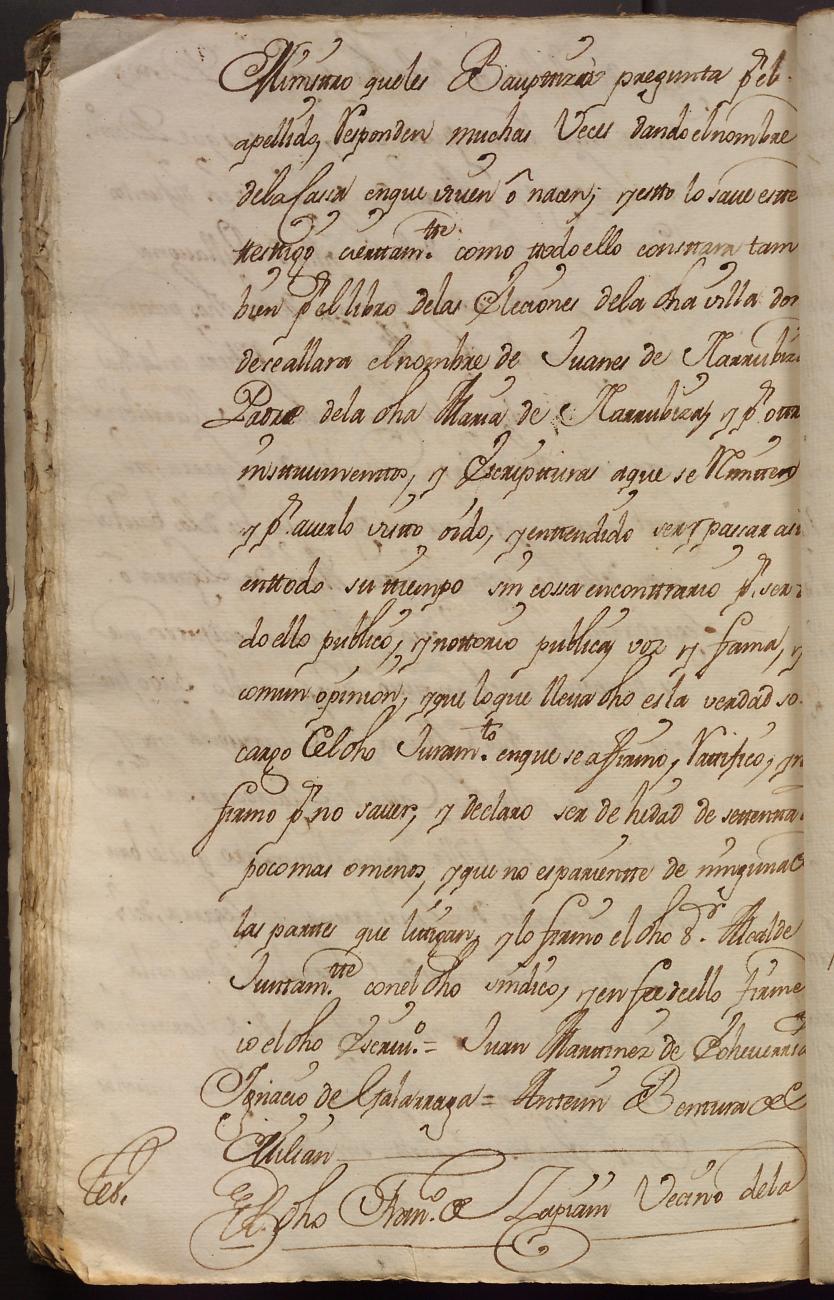 Ministro que les Bauptiza pregunta pr. el
apellido, Responden muchas Veces dando el nombre
de la Cassa enque viuen ô nacen; y estto lo saue estte
ttesttigo ciertam.tte como ttodo ello consttara tam
bien pr. el libro delas Elecciones dela dha villa don
de se allara el nombre de Juanes de Narrubiza
Padre dela dha Maria de Narrubiza, y pr. otrra
insttrumenttos, y Escriptturas aque se Rimitten
y pr. auerlo vistto oido, y enttendido ver y passar asi
enttodo su ttiempo sin cossa enconttrario pr. ser
do ello publico, y nottorio publica voz y fama, y
comun opinion, y que lo que lleua dho es la verdad so
cargo del dho Juram.to enque se affirmo, Rattifico,
firmo pr. no sauer, y declaro ser de hedad de settentta
poco mas o menos, y que no es parientte de ninguna de
las parttes que littigan, y lo firmo el dho s.r Alcalde
Junttam.tte con el dho sindico, y en fee de ello firme
io el dho Escriu.o = Juan Marttinez de Echeuerria
Ignacio de Galarraga = Antteun Benttura de
Milian
tes.
El dho Fran.co de Zapiain Vecino dela